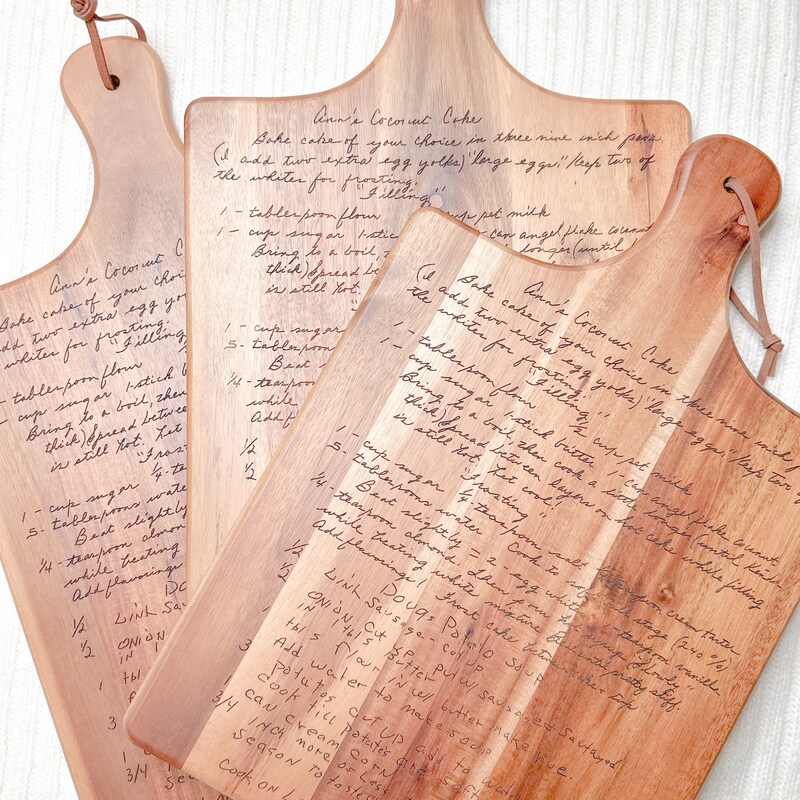 Ann's Coconut C
Bake cake of your choi
add two extra egg yo
whites for frosting.
"Filling
tablespoon flour
cup sugar 1-stick b
Bring to a boil, then
thick) Spread between
is still hot. Let
"Frost
1 - cup sugar 1/4 - te
5 - tablespoons wate
Beat slightly
1/4 - teaspoon almon
while heating
Add flavorings
Do
1/2 Link Sau
1/2 onion
in
1 tbl
3
1
3/4
Se
Ann's Coconut Cake
Bake cake of your choice in three nine inch pans
(I add two extra egg yolks) "large eggs." Keep two of
the whites for frosting.
"Filling"
1 - tablespoon flour cup pet milk
1 - cup sugar 1-stic can angel flake coconut
Bring to a boil, t longer (until k
thick) Spread be
is still hot.
1 - cup sugar
5 - tablespoon
Beat s
1/4 - teaspoon
while
Add f
1/2
1/2
Ann's Coconut Cake
Bake cake of your choice in three nine inch p
(I add two extra egg yolks) "large eggs." Keep two
the whites for frosting.
"Filling"
1 - tablespoon flour 1/2 cup pet milk
1 - cup sugar 1-stick butter 1 can angel flake coconut
Bring to a boil, then cook a little longer (until kinda
thick) Spread between layers on hot cake while filling
is still hot. Let cool.
"Frosting"
1 - cup sugar 1/4 teaspoon salt teaspoon cream tarter
5 - tablespoons water Cook to stage (240°)
Beat slightly - 2 egg whites teaspoon vanilla
1/4 - teaspoon almond. Then pour hot syrup "slowly"
while beating white mixture. Beat until pretty stiff.
Add flavorings. Frost cake between
Doug's Potato Soup
1/2 Link Sausage - cut up
1/2 onion cut up. Put w/ sausage & sauteed
in 1 tbls butter
tbls flour in w/ butter make rue.
3 Add water to make soup
Potatoes cut up add to water
1 cook till potatoes are soft
3/4 can cream corn
inch more or less
season to taste
cook on L